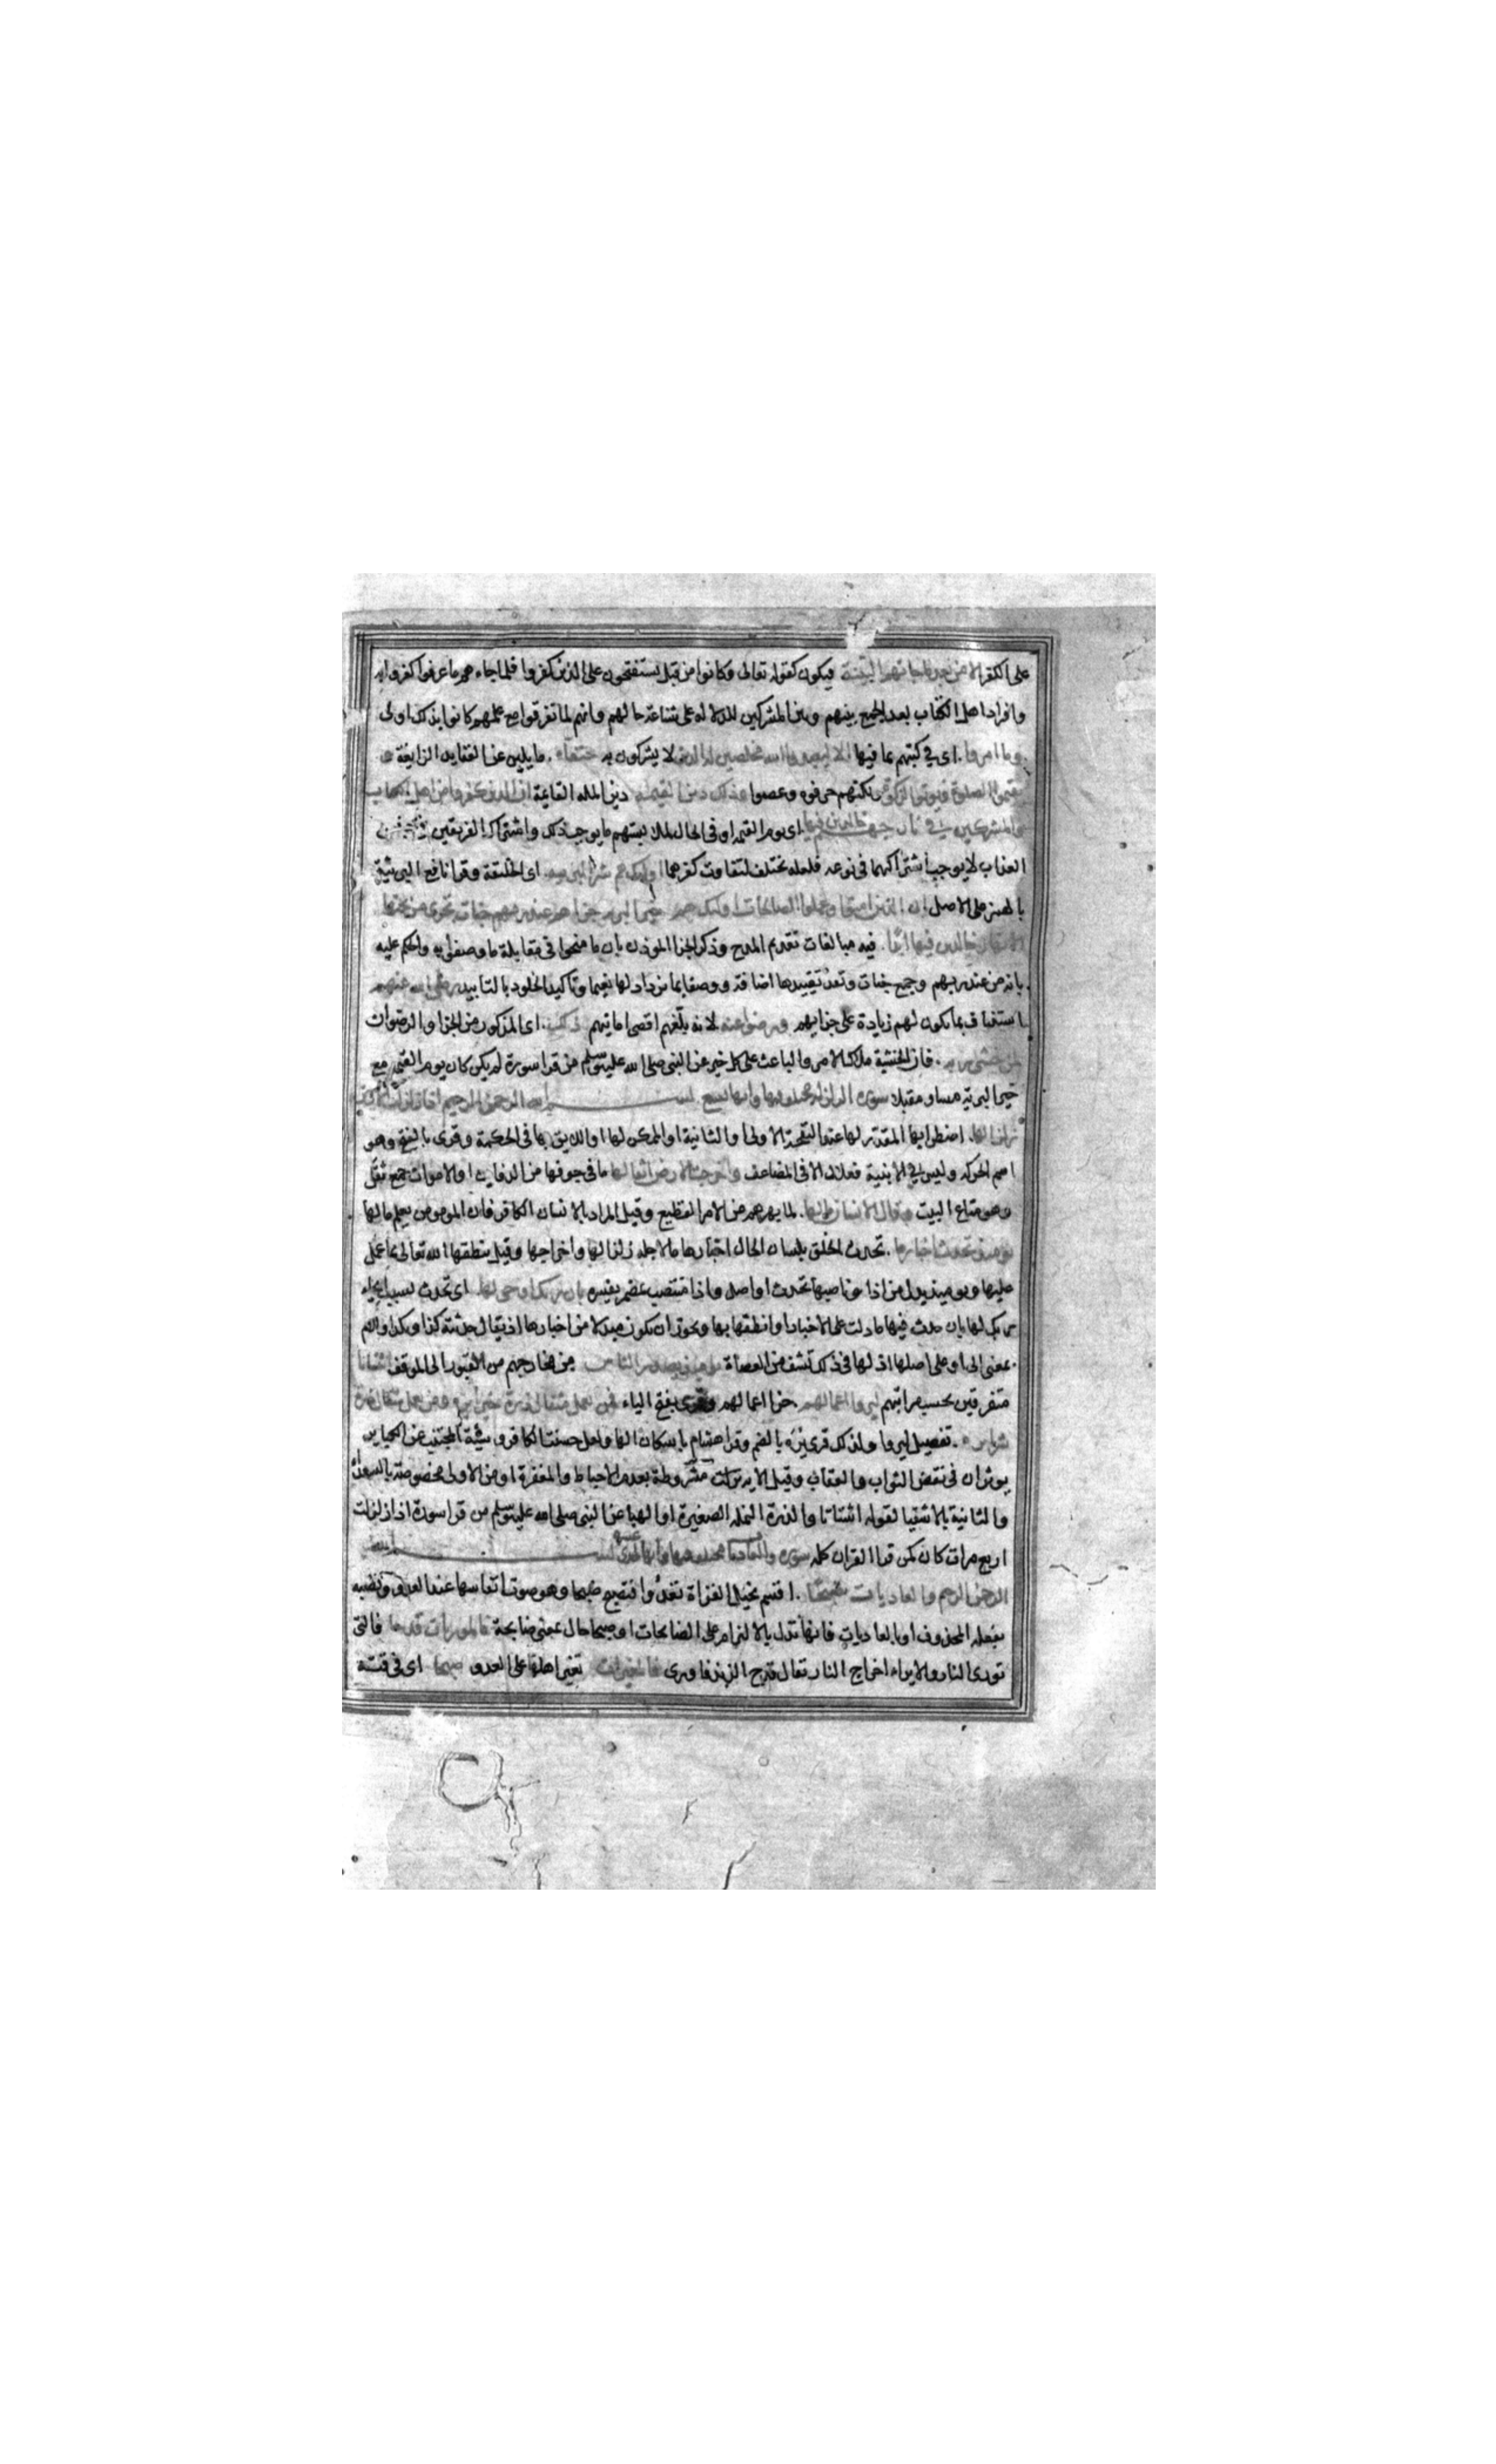 على الكفر الا من بعد ما جاءتهم البينة فيكون كقوله تعالى وكانوا من قبل يستفتحون على الذين كفروا فلما جاءهم ما عرفوا كفروا به
وافراد اهل الكتاب بعد الجمع بينهم وبين المشركين للدلالة على شناعة حالهم وانهم لما تفرقوا مع علمهم كانوا بذلك اولى
وما امروا اى في كتبهم بما فيها الا ليعبدوا الله مخلصين له الدين لا يشركون به حنفاء مايلين عن العقايد الزايغة و
يقيموا الصلوة ويوتوا الزكوة ولكنهم حرفوه وعصوا وذلك دين القيمة دين الملة القايمة ان الذين كفروا من اهل الكتاب
والمشركين في نار جهنم خالدين فيها اى يوم القيمة او في الحال لملابستهم ما يوجب ذلك واشتراك الفريقين في جنس
العذاب لا يوجب اشتراكهما في نوعه فلعله يختلف لتفاوت كفرهما اولئك هم شر البرية اى الخليقة وقرا نافع البريئة
بالهمز على الاصل ان الذين امنوا وعملوا الصالحات اولئك هم خير البرية جزاهم عند ربهم جنات تجرى من تحتها
الانهار خالدين فيها ابدا فيه مبالغات تقديم المدح وذكر الجزا الموذن بان ما منحوا في مقابلة ما وصفوا به والحكم عليه
بانه من عند ربهم وجمع جنات وتقييدها اضافة ووصفا بما تزداد لها نعيما وتاكيد الخلود بالتابيد رضى الله عنهم
استيناف بما يكون لهم زيادة على جزايهم ورضوا عنه لانه بلغهم اقصى امانيهم ذلك اى المذكور من الجزا والرضوان
لمن خشى ربه فان الخشية ملاك الامر والباعث على كل خير عن النبى صلى الله عليه وسلم من قرا سورة لم يكن كان يوم القيمة مع
خير البرية مساء ومقيلا سورة الزلزلة مختلف فيها وايها تسع بسم الله الرحمن الرحيم اذا زلزلت الارض
زلزالها اضطرابها المقدر لها عند النفخة الاولى او الثانية او الممكن لها او اللايق بها في الحكمة وقرى بالفتح وهو
اسم الحركة وليس في الابنية فعلال الا في المضاعف واخرجت الارض اثقالها ما في جوفها من الدفاين او الاموات جمع ثقل
وهو متاع البيت وقال الانسان مالها لما يبهرهم من الامر الفظيع وقيل المراد بالانسان الكافر فان المومن يعلم مالها
يومئذ تحدث اخبارها تحدث الخلق بلسان الحال اخبارها ما لاجله زلزالها واخراجها وقيل ينطقها الله تعالى بما عمل
عليها ويوميذ بدل من اذا وناصبها تحدث او اصل واذا منتصب بمضمر بان ربك اوحى لها اى تحدث بسبب ايحاء
ربك لها بان حدث فيها ما دلت على الاخبار او انطقها بها ويجوز ان يكون بدلا من اخبارها اذ يقال حدثته كذا وبكذا واللام
بمعنى الى او على اصلها اذ لها في ذلك تشف من العصاة يومئذ يصدر الناس من مخارجهم من القبور الى الموقف اشتاتا
متفرقين بحسب مراتبهم ليروا اعمالهم جزا اعمالهم وقرى بفتح الياء فمن يعمل مثقال ذرة خيرا يره ومن يعمل مثقال ذرة
شرا يره تفصيل ليروا ولذلك قرى يره بالضم وقرا هشام باسكان الها ولعل حسنة الكافر وسيئة المجتنب عن الكباير
يوثران في نقص الثواب والعقاب وقيل الاية مشروطة بعدم الاحباط والمغفرة او من الاولى مخصوصة بالسعداء
والثانية بالاشقيا لقوله اشتاتا والذرة النملة الصغيرة او الهبا عن النبى صلى الله عليه وسلم من قرا سورة اذا زلزلت
اربع مرات كان كمن قرا القران كله سورة والعاديات مختلف فيها وايها احدى عشرة بسم الله
الرحمن الرحيم والعاديات ضبحا اقسم بخيل الغزاة تعدوا فتضبح ضبحا وهو صوت انفاسها عند العدو ونصبه
بفعله المحذوف او بالعاديات فانها تدل بالالتزام على الضابحات او ضبحا حال بمعنى ضابحة فالموريات قدحا فالتى
تورى النار والايراء اخراج النار يقال قدح الزند فاورى فالمغيرات تغير اهلها على العدو صبحا اى في وقته